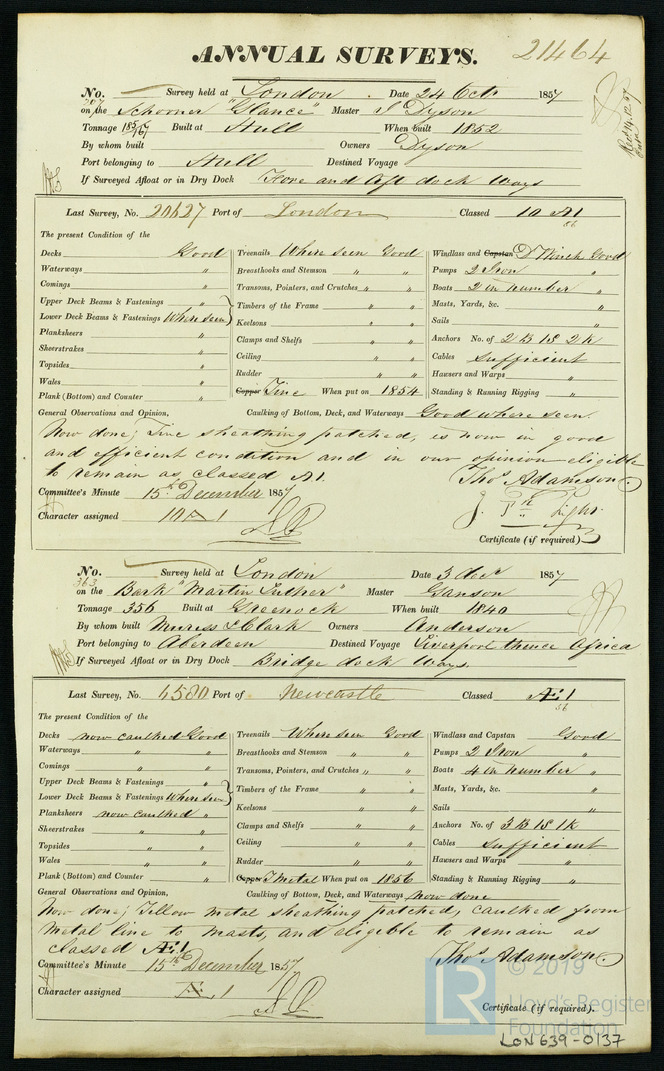 ANNUAL SURVEYS. 21464
No. 707 Survey held at London. Date 24 Octr 1857
on the Schooner "Glance" Master J Dyson
Tonnage 185/167 Built at Hull When built 1852
By whom built Owners Dyson
Port belonging to Hull Destined Voyage
If Surveyed Afloat or in Dry Dock Fore and Aft dock Ways
Last Survey, No. 20627 Port of London Classed 10 A1
The present Condition of the
Decks Good Treenails Where seen Good Windlass and Capstan D Winch Good
Waterways " Breasthooks and Stemson " " Pumps 2 Iron "
Comings " Transoms, Pointers, and Crutches " " Boats 2 in number "
Upper Deck Beams & Fastenings " Timbers of the Frame " " Masts, Yards, &c. "
Lower Deck Beams & Fastenings Where seen Keelsons " " Sails "
Planksheers " Clamps and Shelfs " " Anchors No. of 2 B 1S 2K
Sheerstrakes " Ceiling " " Cables Sufficient
Topsides " Rudder " " Hawsers and Warps "
Wales " Copper Zinc When put on 1854 Standing & Running Rigging "
Plank (Bottom) and Counter "
General Observations and Opinion, Caulking of Bottom, Deck, and Waterways Good where seen.
Now done; Zinc sheathing patched, is now in good
and efficient condition and in our opinion eligible
to remain as classed A1. Thos Adamson
Committee's Minute 15th December 1857
Character assigned 10 A 1
Certificate (if required)
No. 363 Survey held at London Date 3 Decr 1857
on the Bark "Martin Luther" Master Ganson
Tonnage 356 Built at Greenock When built 1840
By whom built Muriss & Clark Owners Anderson
Port belonging to Aberdeen Destined Voyage Liverpool thence Africa
If Surveyed Afloat or in Dry Dock Bridge dock Ways.
Last Survey, No. 6580 Port of Newcastle Classed Æ1
The present Condition of the
Decks now caulked Good Treenails Where seen Good Windlass and Capstan Good
Waterways " " Breasthooks and Stemson " " Pumps 2 Iron "
Comings " " Transoms, Pointers, and Crutches " " Boats 4 in number "
Upper Deck Beams & Fastenings " Timbers of the Frame " " Masts, Yards, &c. "
Lower Deck Beams & Fastenings Where seen Keelsons " " Sails "
Planksheers now caulked " Clamps and Shelfs " " Anchors No. of 3 B 1S 1K
Sheerstrakes " " Ceiling " " Cables Sufficient
Topsides " " Rudder " " Hawsers and Warps "
Wales " " Copper Y Metal When put on 1856 Standing & Running Rigging "
Plank (Bottom) and Counter "
General Observations and Opinion, Caulking of Bottom, Deck, and Waterways now done
Now done; Yellow metal sheathing patched, caulked from
metal line to masts, and eligible to remain as
classed Æ1 Thos Adamson
Committee's Minute 15th December 1857
Character assigned Æ 1
Certificate (if required).
LR © 2019
Lloyd's Register
Foundation
LON639-0137